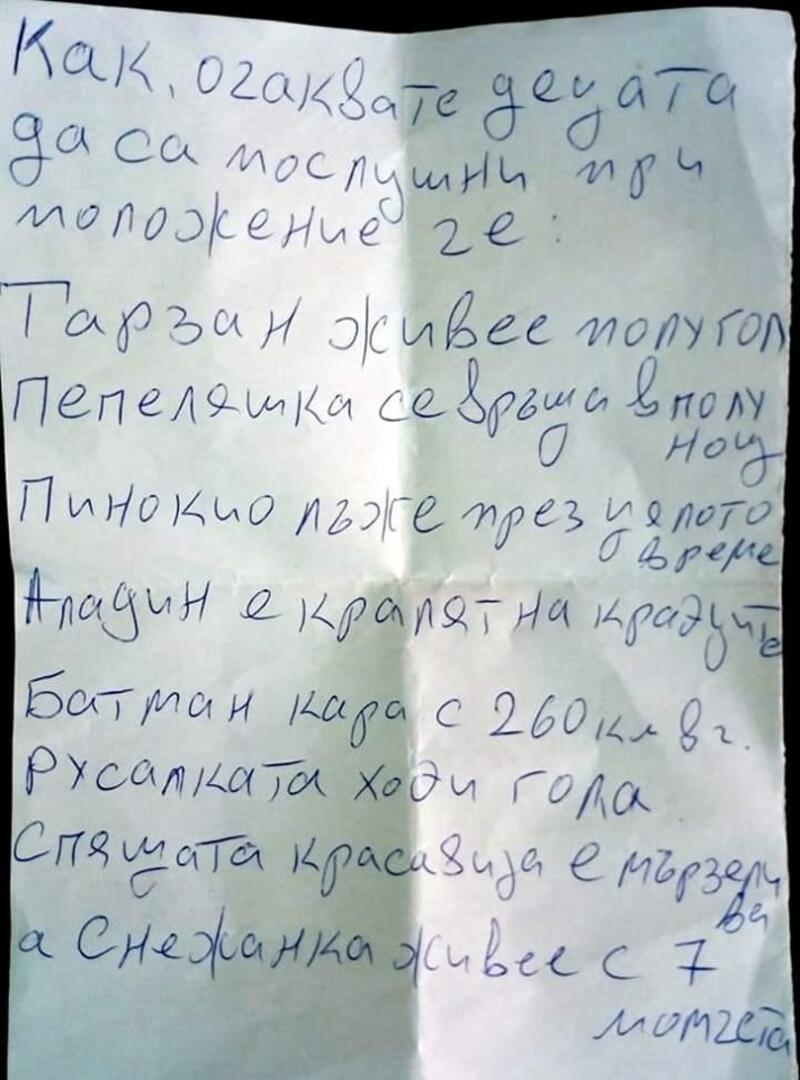 Как, очаквате децата
да са послушни при
положение че:
Тарзан живее полугол
Пепеляшка се връща в полу
нощ
Пинокио лъже през цялото
време
Аладин е кралят на крадците
Батман кара с 260 км в ч.
Русалката ходи гола
Спящата красавица е мързели
ва
а Снежанка живее с 7
момчета